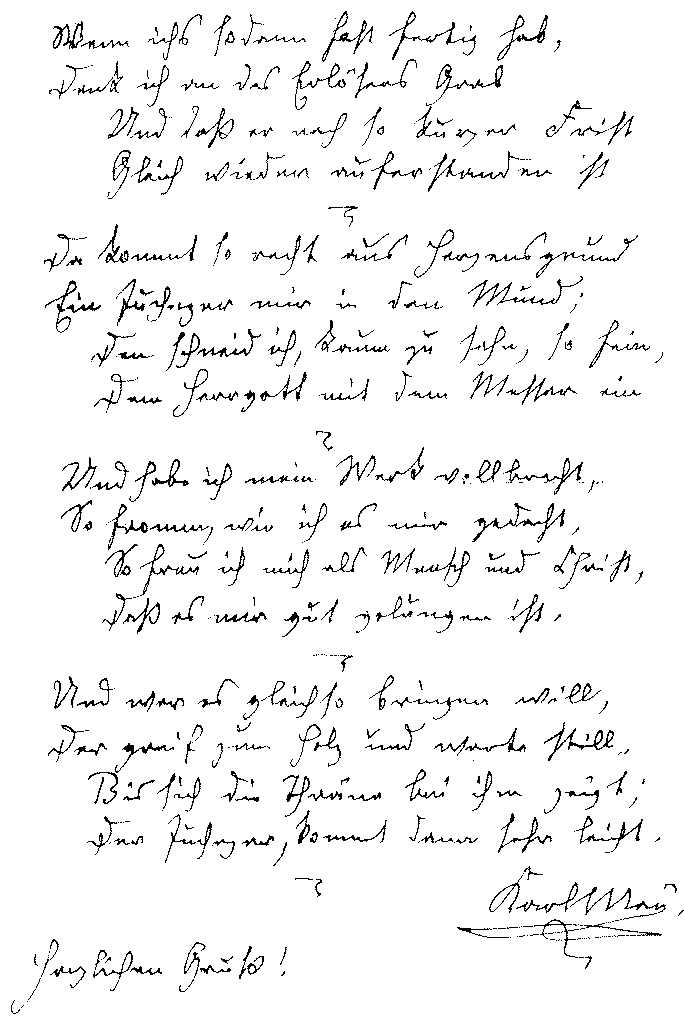 Wenn ichs sodann fast fertig hab,
Denk ich an des Erlösers Grab
Und daß er nach so kurzer Frist
Gleich wieder auferstanden ist
Da kommt so recht aus Herzensgrund
Ein Juchazer mir in den Mund;
Den schneid ich, kaum zu sehn, so fein,
Dem Herrgott mit dem Messer ein
Und habe ich mein Werk vollbracht,
So fromm, wie ich es mir gedacht,
So freu ich mich als Mensch und Christ,
Daß es mir gut gelungen ist.
Und wer es gleich so bringen will,
Der greif zum Holz und warte still,
Bis sich die Thräne bei ihm zeigt;
Der Juchazer, kommt dann sehr leicht.
Karl May.
Herzlichen Gruß!